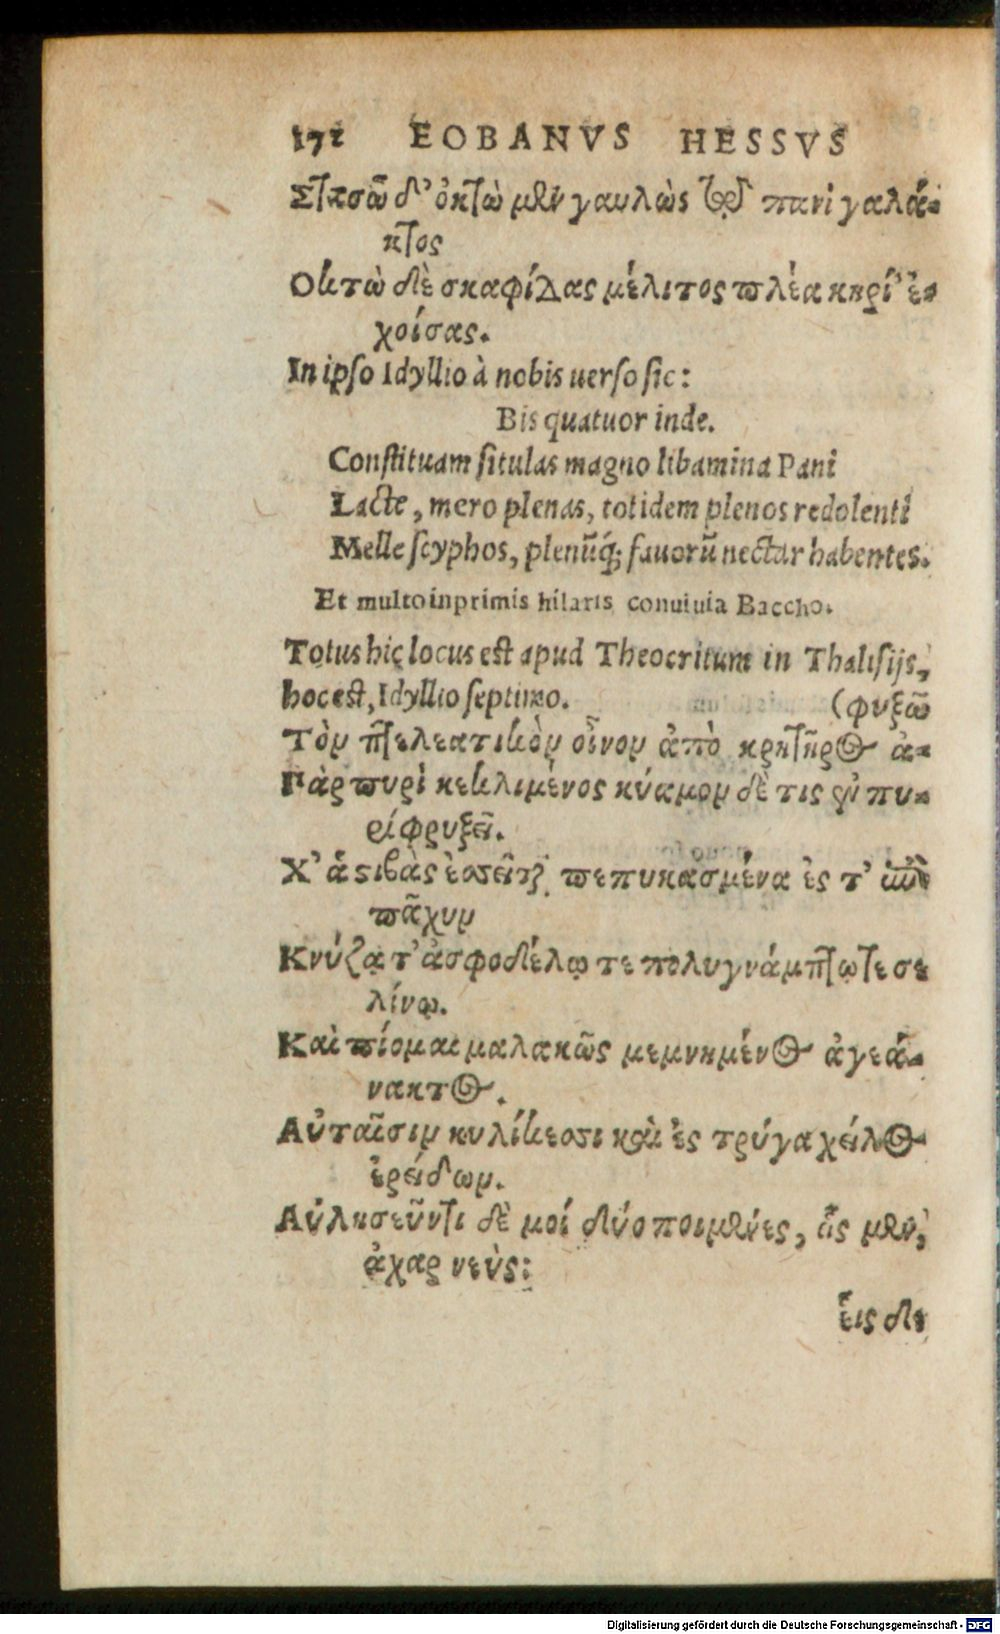 172 EOBANVS HESSVS
Στασῶ δ’ ὀκτὼ μὲν γαυλὼς τῷ πανὶ γαλά-
κτος
Οκτὼ δὲ σκαφίδας μέλιτος πλέα κηρί’ ἐ-
χοίσας.
In ipſo Idyllio à nobis uerſo ſic:
Bis quatuor inde.
Conſtituam ſitulas magno libamina Pani
Lacte, mero plenas, totidem plenos redolenti
Melle ſcyphos, plenūq́; fauorū nectar habentes.
Et multo inprimis hilaris conuiuia Baccho.
Totus hic locus est apud Theocritum in Thalisijs,
hoc est, Idyllio ſeptimo. (φυξῶ
Τὸν πτελεατικὸν οἶνον ἀπὸ κρητῆρος ἀ-
Πὰρ πυρὶ κεκλιμένος κύαμον δὲ τις ἐν πυ-
ρί φρυξεῖ.
Χ’ ἁ στιβὰς ἐσσεῖται πεπυκασμένα ἐς τ’ ἐπὶ
πᾶχυν
Κνύζᾳ τ’ ἀσφοδέλῳ τε πολυγνάμπτῳ τε σε
λίνῳ.
Καὶ πίομαι μαλακῶς μεμνημένος ἀγεά-
νακτος.
Αὐταῖσιν κυλίκεσσι καὶ ἐς τρύγα χεῖλος
ἐρείδων.
Αὐλησεῦντι δὲ μοί δύο ποιμένες, εἷς μὲν,
ἀχαρ νεὺς:
εἷς δὲ
Digitalisierung gefördert durch die Deutsche Forschungsgemeinschaft - DFG